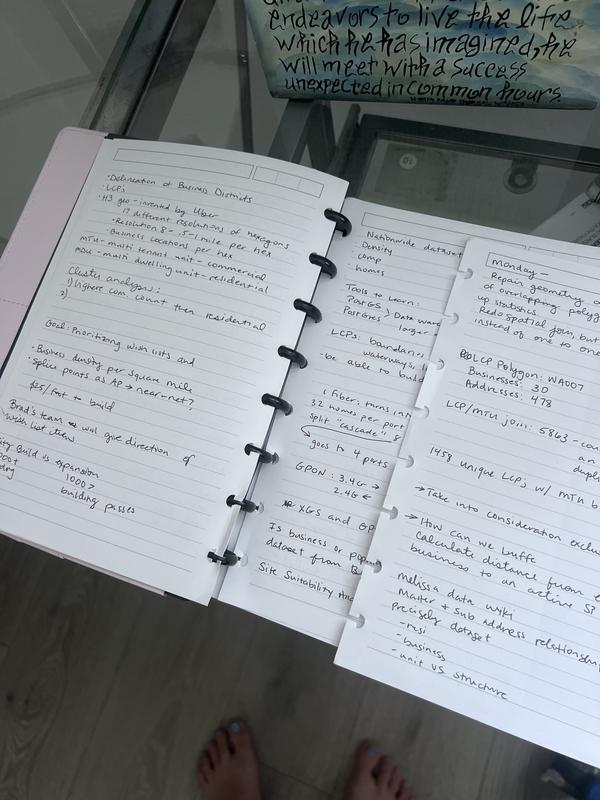 endeavors to live the life
which he has imagined, he
will meet with a success
unexpected in common hours.
· Delineation of Business Districts
· LCP's
· H3 geo - invented by Uber
17 different resolutions of hexagons
· Resolution 8 - .5-1 mile per hex
· Business locations per hex
MTU - multi tenant unit - commercial
MDU - multi dwelling unit - residential
Cluster analysis:
1) highere com. count then residential
2)
Goal: Prioritizing wish lists and
· Business density per square mile
· Splice points as AP → near-net?
$25/foot to build
Brad's team will give direction of
wish list item
Build is expansion
1000 >
building passes
Nationwide dataset
Density
· comp
· homes
Tools to Learn:
PostGS > Data ware
Postgres larger
LCPs: boundari
waterways,
- be able to build
1 fiber: turns in
32 homes per port
Split "cascade" 8
goes to 4 ports
GPON: 3.4G →
2.4G ←
XGS and GP
Is business or pop
dataset from
Site Suitability
Monday -
Repair geometry
of overlapping polyg
up statistics
Redo spatial join, but
instead of one to one
PDLCP Polygon: WA007
Businesses: 30
Addresses: 478
LCP/MTU join: 5863 - cou
an
dupli
1458 unique LCP's w/ MTU b
→ Take into consideration exclu
→ How can we buffe
calculate distance from e
business to an active
melissa data wiki
Master + Sub address relationsh
Precisely dataset
- resi
- business
- unit vs structure